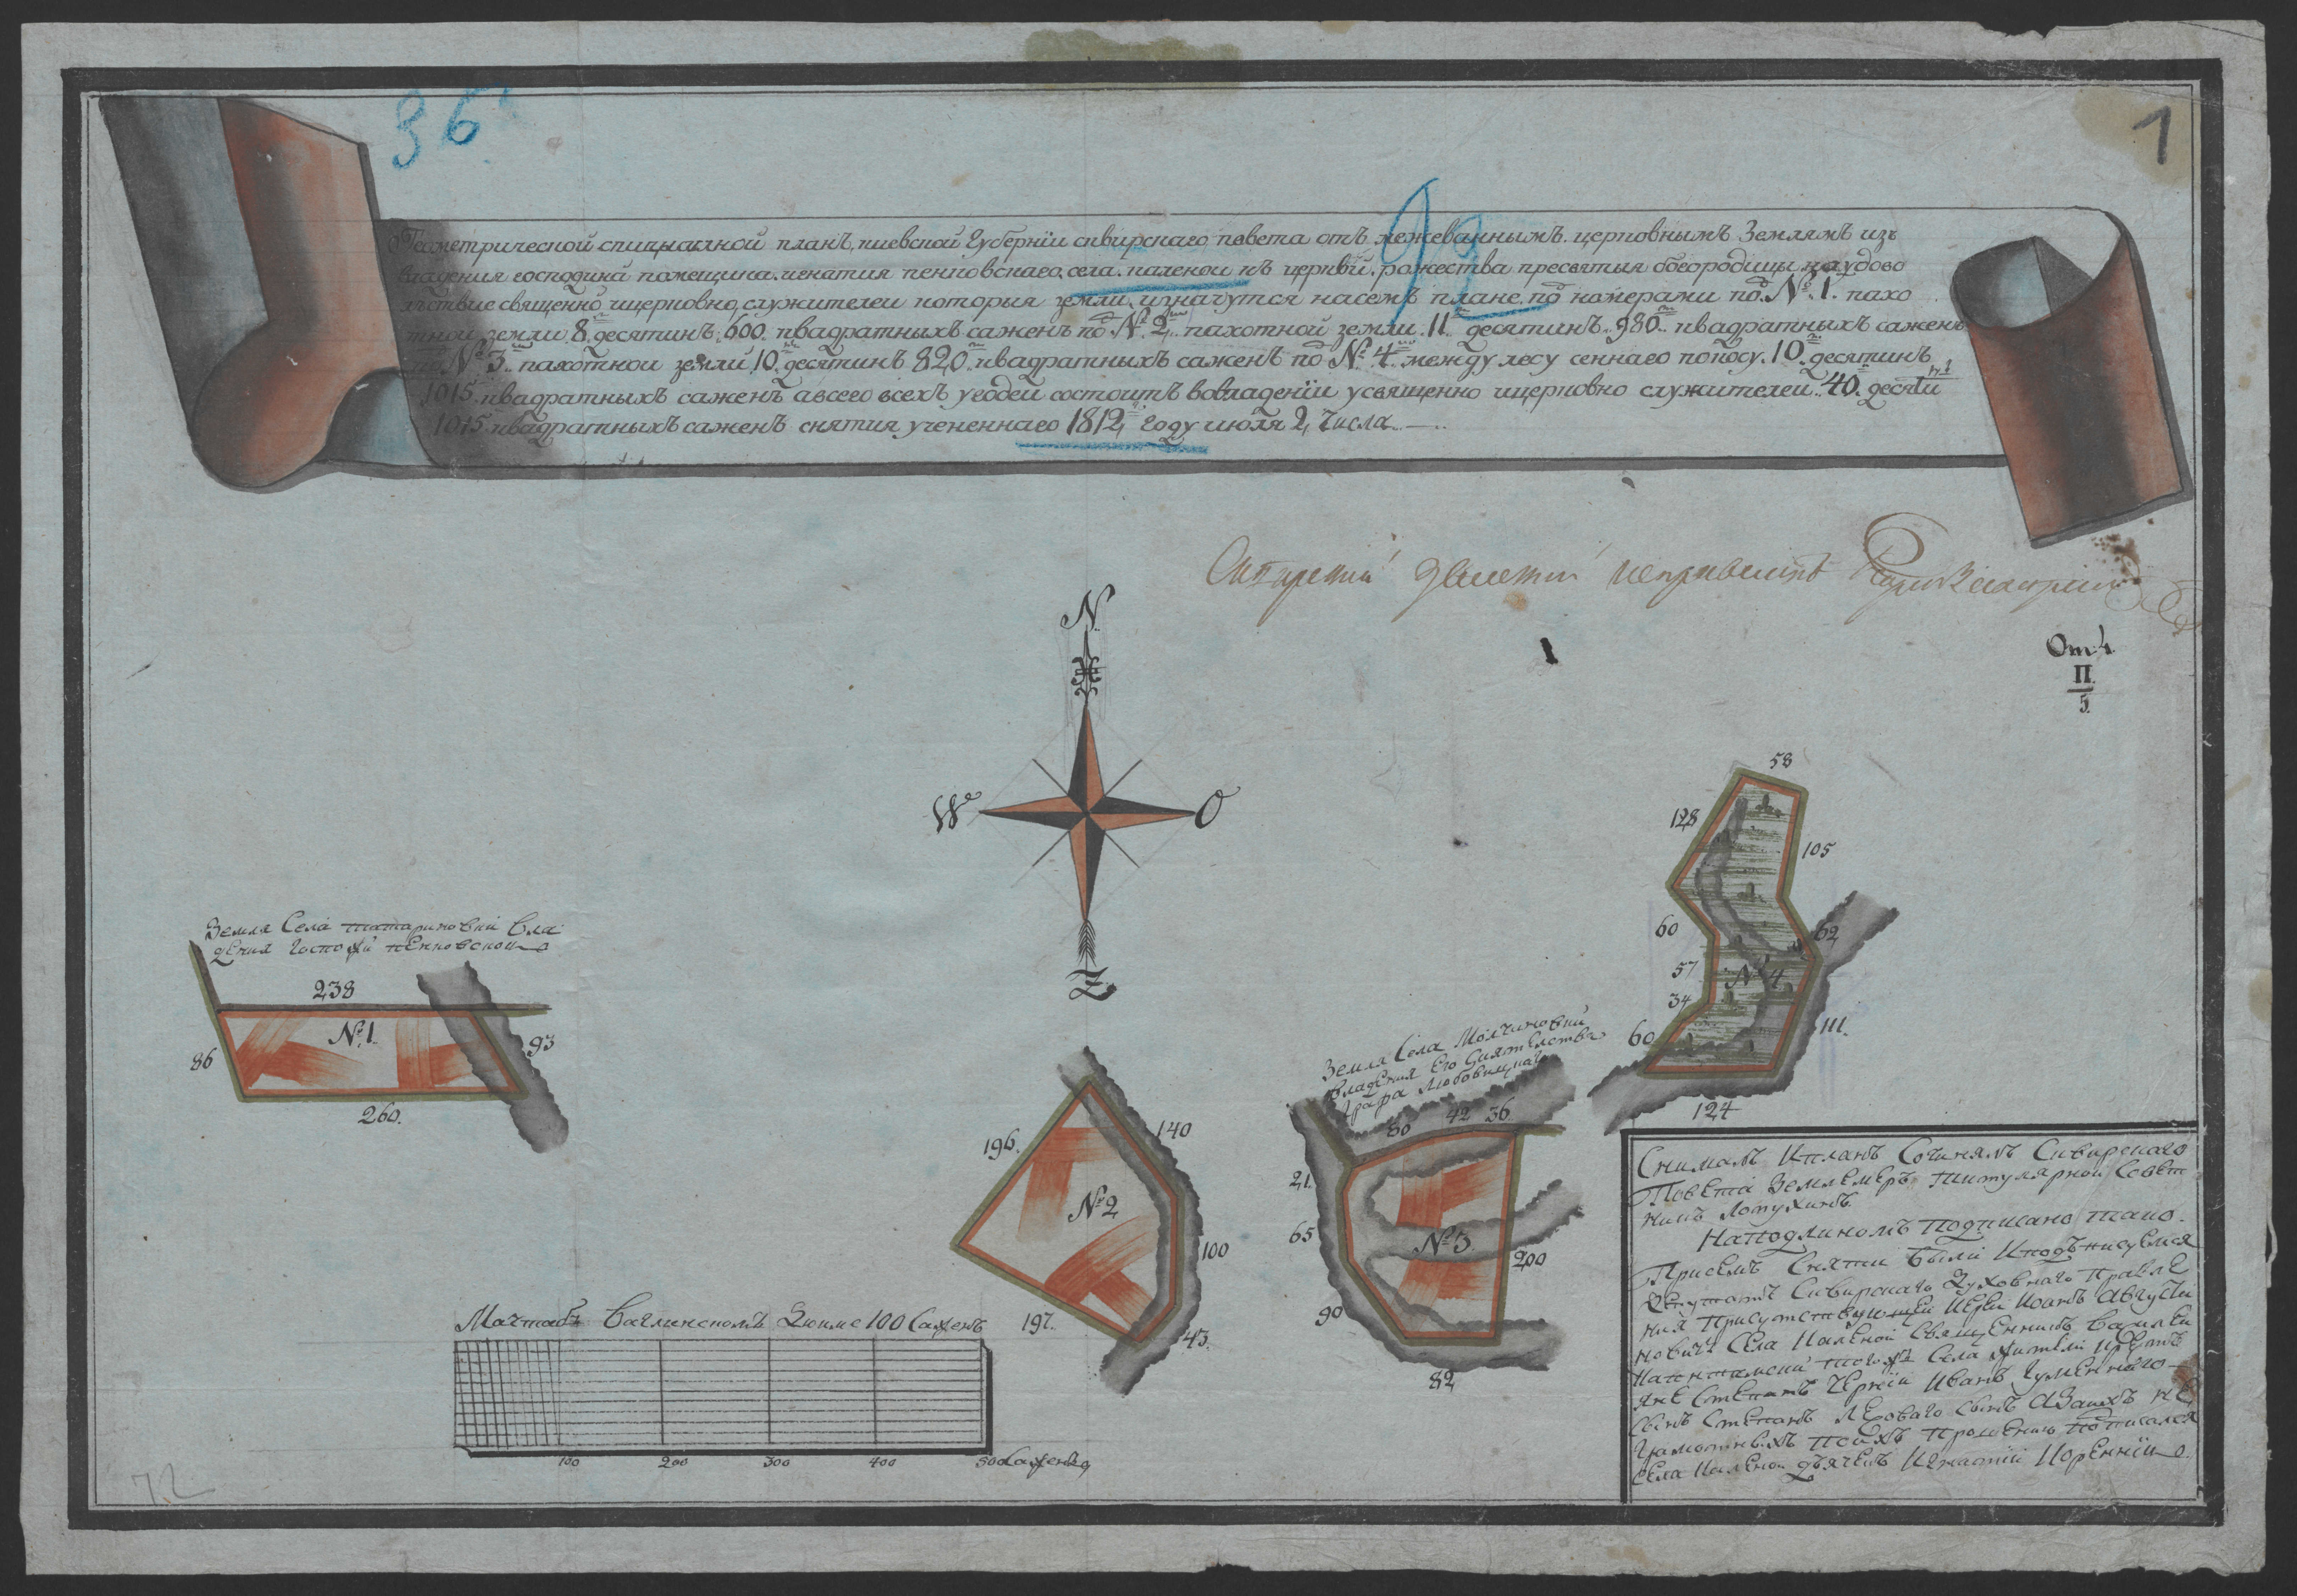 36
1
Геометрической специальной планъ, киевской губернии сквирскаго повета отъ межеваннымъ церковнымъ Землямъ изъ
владения господина помещика игнатия пенковскаго села каленои къ церкви рожества пресвятыя богородицы наудово
льствие священно ицерковно служителеи которыя земли изначутся насемъ плане по номерами по № 1. пахо
тнои земли 8. десятинъ 600. квадратныхъ саженъ по № 2. пахотной земли. 11. десятинъ. 980. квадратныхъ саженъ
по № 3. пахотнои земли 10. десятинъ 820. квадратныхъ саженъ по № 4. между лесу сеннаго покосу. 10. десятинъ
1015. квадратныхъ саженъ авсего всехъ угодеи состоитъ вовладении усвященно ицерковно служителеи. 40. десяти
1015. квадратныхъ саженъ снятия учененнаго 1812. году июля 2, числа
Отд.
II.
5.
N.
We
O
Z.
Земля Села татариновки вла
дения Госпожи пенковскои
238
№ 1.
86
93
260.
196.
140
№ 2
100
197.
43.
Земля Села Молчановки
владения Его Сиятелства
Графа
80 42 36
21.
65
№ 3.
200
90
82
58
128
105
60
62
57
№ 4
34
60
111.
124
Маштабъ Ваглинскомъ Дюиме 100 Саженъ
100 200 300 400 500 Саженъ
Снималъ Ипланъ Сочинялъ Сквирскаго
Повета Землемеръ титулярнои Совет
никъ Лотухинъ.
Наподлиномъ подписано тако.
Присемъ Снятии были Иподъписуемся
Депутатъ Сквирскаго Духовнаго правле
ния присутствующеи Иереи Иоанъ Августи
новичъ Села Каленой Священникъ Василеи
тогожъ Села жители Крестъ
яне Степанъ Чернии Иванъ
сынъ Степанъ сынъ Азаихъ не
грамотныхъ поихъ прошению подписался
Села Каленои дьячекъ Игнатии Коренниъ
72